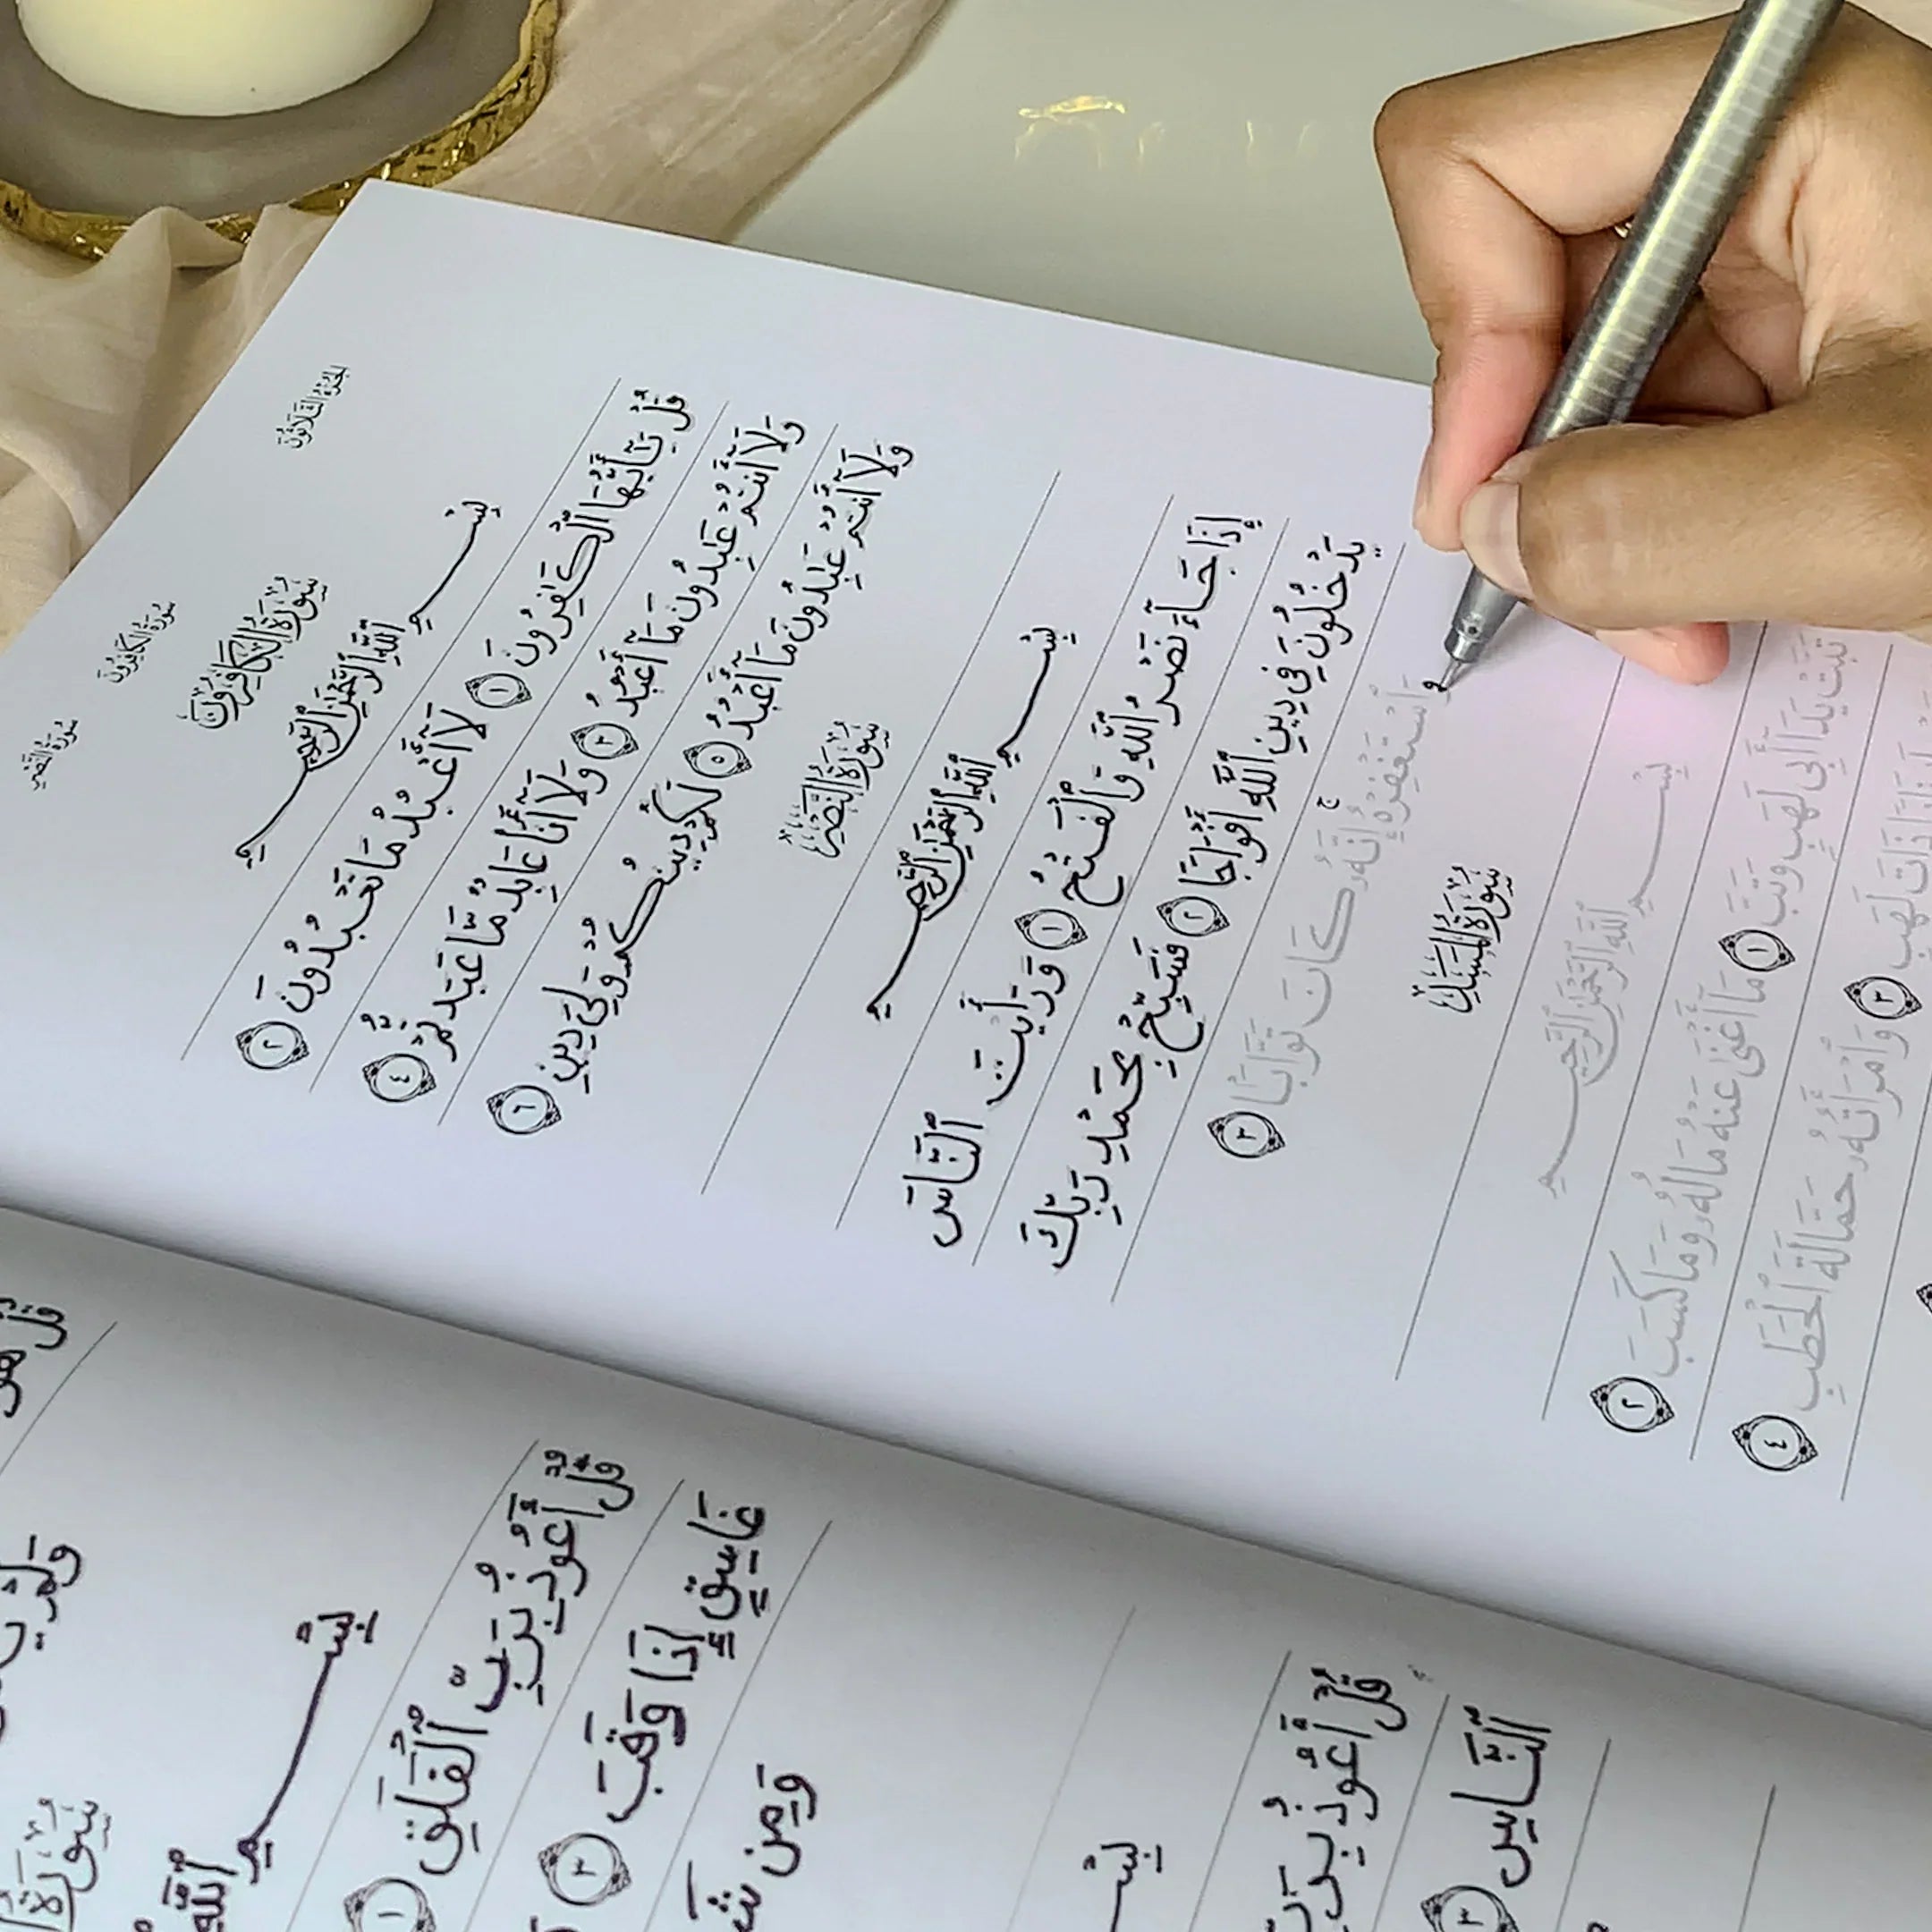 الجزء الثلاثون
سورة الكافرون
سورة النصر
سورة الكافرون
بِسْمِ ٱللَّهِ ٱلرَّحْمَٰنِ ٱلرَّحِيمِ
قُلْ يَٰٓأَيُّهَا ٱلْكَٰفِرُونَ ١ لَآ أَعْبُدُ مَا تَعْبُدُونَ ٢
وَلَآ أَنتُمْ عَٰبِدُونَ مَآ أَعْبُدُ ٣ وَلَآ أَنَا۠ عَابِدٌ مَّا عَبَدتُّمْ ٤
وَلَآ أَنتُمْ عَٰبِدُونَ مَآ أَعْبُدُ ٥ لَكُمْ دِينُكُمْ وَلِيَ دِينِ ٦
سورة النصر
بِسْمِ ٱللَّهِ ٱلرَّحْمَٰنِ ٱلرَّحِيمِ
إِذَا جَآءَ نَصْرُ ٱللَّهِ وَٱلْفَتْحُ ١ وَرَأَيْتَ ٱلنَّاسَ
يَدْخُلُونَ فِي دِينِ ٱللَّهِ أَفْوَاجًا ٢ فَسَبِّحْ بِحَمْدِ رَبِّكَ
وَٱسْتَغْفِرْهُ ۚ إِنَّهُۥ كَانَ تَوَّابًۢا ٣
سورة المسد
بِسْمِ ٱللَّهِ ٱلرَّحْمَٰنِ ٱلرَّحِيمِ
تَبَّتْ يَدَآ أَبِي لَهَبٍ وَتَبَّ ١ مَآ أَغْنَىٰ عَنْهُ مَالُهُۥ وَمَا كَسَبَ ٢
ذَاتَ لَهَبٍ ٣ وَٱمْرَأَتُهُۥ حَمَّالَةَ ٱلْحَطَبِ ٤
قُلْ هُوَ
بِسْمِ ٱللَّهِ
قُلْ أَعُوذُ بِرَبِّ ٱلْفَلَقِ ١
غَاسِقٍ إِذَا وَقَبَ ٣
وَمِن
بِسْمِ
قُلْ أَعُوذُ بِرَبِّ
ٱلنَّاسِ